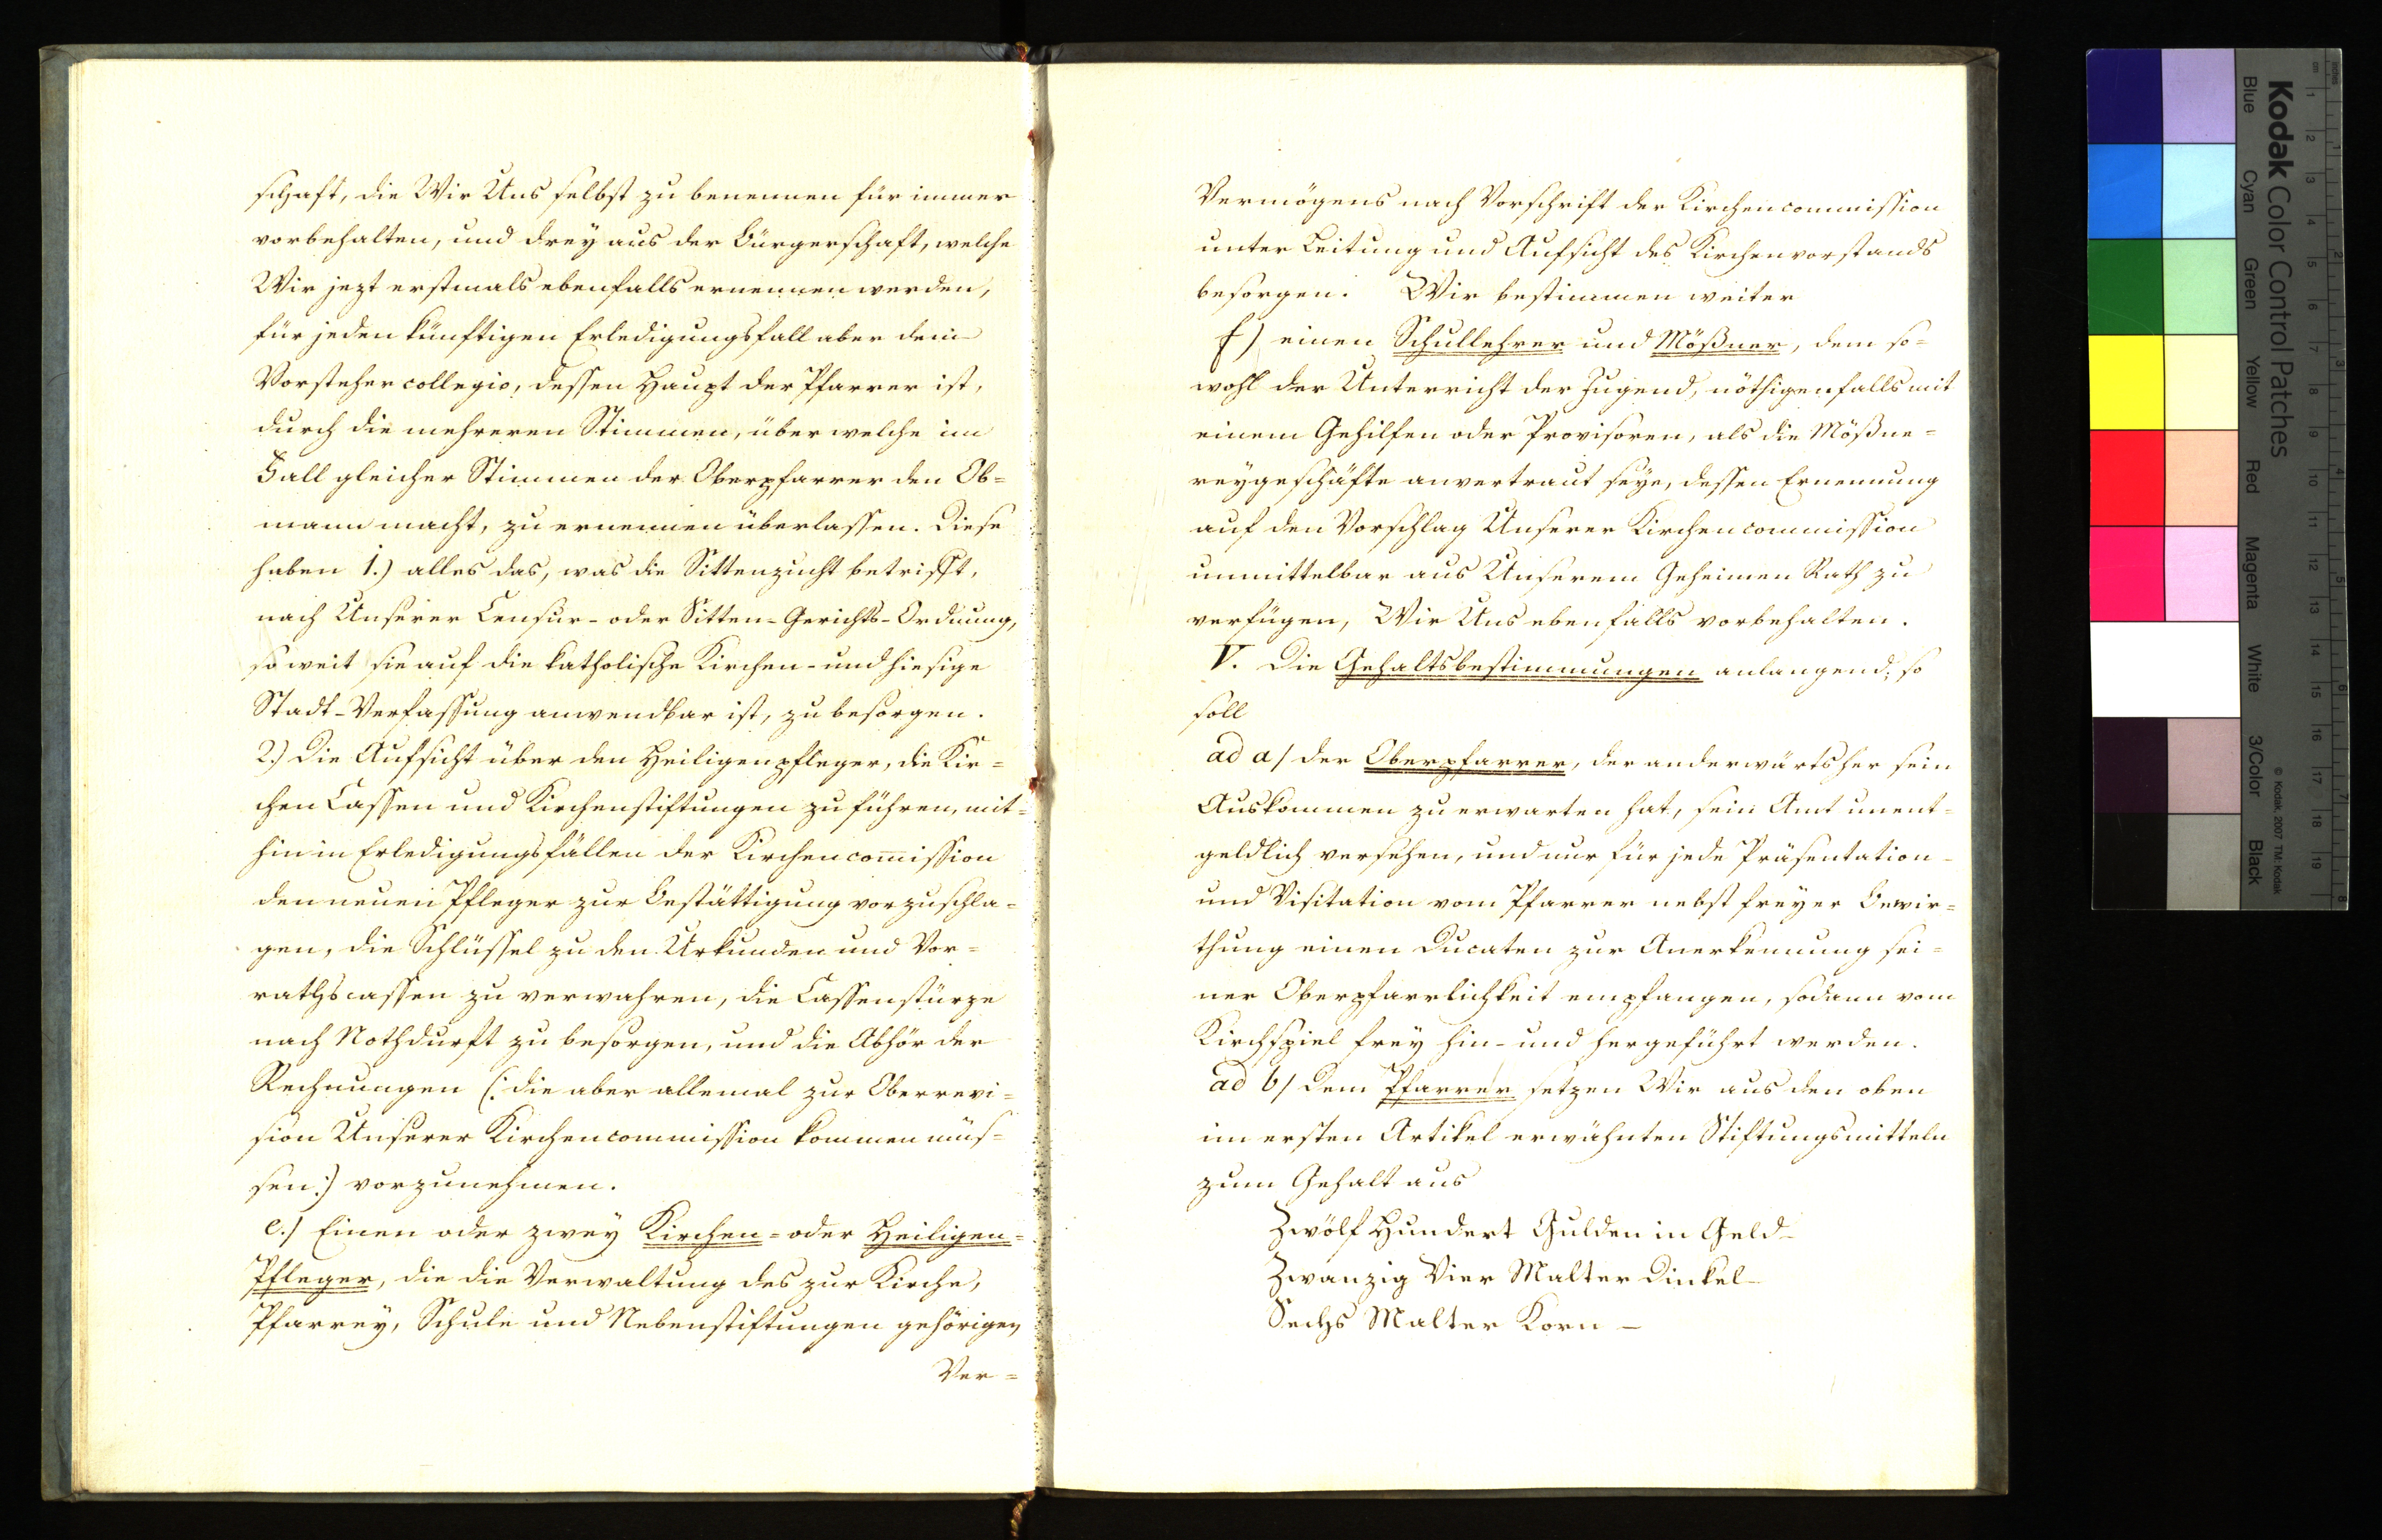 schaft, die Wir Uns selbst zu benennen für immer
vorbehalten, und drey aus der Bürgerschaft, welche
Wir jezt erstmals ebenfalls ernennen werden,
für jeden künftigen Erledigungsfall aber dem
Vorsteher collegio, dessen Haupt der Pfarrer ist,
durch die mehreren Stimmen, über welche im
Fall gleicher Stimmen der Oberpfarrer den Ob=
mann macht, zu ernennen überlassen. Diese
haben 1.) alles das, was die Sittenzucht betrifft,
nach Unserer Censur- oder Sitten-Gerichts-Ordnung,
so weit sie auf die katholische Kirchen- und hiesige
Stadt-Verfassung anwendbar ist, zu besorgen.
2.) Die Aufsicht über den Heiligenpfleger, die Kir=
chen Cassen und Kirchenstiftungen zu führen, mit=
hin in Erledigungsfällen der Kirchencommission
den neuen Pfleger zur Bestättigung vorzuschla=
gen, die Schlüssel zu den Urkunden und Vor=
rathscassen zu verwahren, die Cassenstürze
nach Nothdurft zu besorgen, und die Abhör der
Rechnungen (: die aber allemal zur Oberrevi=
sion Unserer Kirchencommission kommen müs=
sen:) vorzunehmen.
e.) Einen oder zwey Kirchen= oder Heiligen=
Pfleger, die die Verwaltung des zur Kirche,
Pfarrey, Schule und Nebenstiftungen gehörigen
Ver=
Vermögens nach Vorschrift der Kirchencommission
unter Leitung und Aufsicht des Kirchenvorstands
besorgen. Wir bestimmen weiter
f) einen Schullehrer und Mößner, dem so=
wohl der Unterricht der Jugend, nöthigenfalls mit
einem Gehilfen oder Provisoren, als die Mößne=
reygeschäfte anvertraut seye, dessen Ernennung
auf den Vorschlag Unserer Kirchencommission
unmittelbar aus Unserem Geheimen Rath zu
verfügen, Wir Uns ebenfalls vorbehalten.
V. Die Gehaltsbestimmungen anlangend, so
soll
ad a/ der Oberpfarrer, der anderwärtsher sein
Auskommen zu erwarten hat, sein Amt unent=
geldlich versehen, und nur für jede Präsentation
und Visitation vom Pfarrer nebst freyer Bewir=
thung einen Ducaten zur Anerkennung sei=
ner Oberpfarrlichkeit empfangen, sodann vom
Kirchspiel frey hin- und hergeführt werden.
ad b/ dem Pfarrer setzen Wir aus den oben
im ersten Artikel erwähnten Stiftungsmitteln
zum Gehalt aus
Zwölf Hundert Gulden in Geld –
Zwanzig Vier Malter Dinkel –
Sechs Malter Korn –
Kodak Color Control Patches
Blue Cyan Green Yellow Red Magenta White 3/Color Black
© Kodak, 2007 TM: Kodak
inches 1 2 3 4 5 6 7 8
cm 1 2 3 4 5 6 7 8 9 10 11 12 13 14 15 16 17 18 19